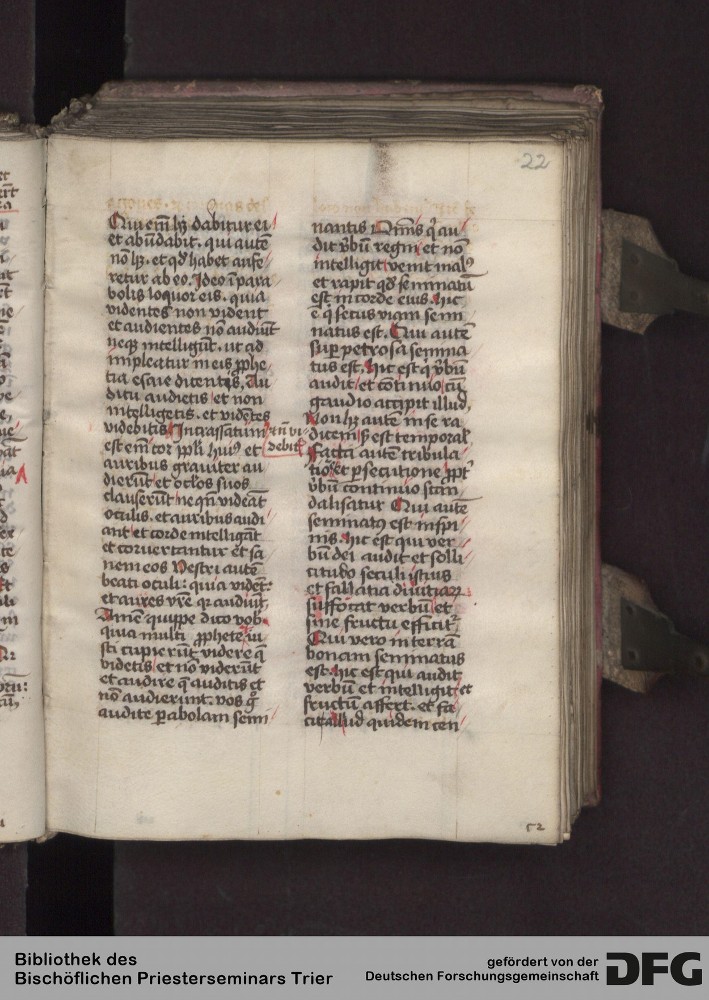 22
Qui em̄ hꝫ dabitur ei
et abūdabit. qui autē
nō hꝫ. et qd̓ habet aufe
retur ab eo. Ideo ī para
bolis loquor eis. quia
videntes non vident
et audientes nō audiūt
neqꝫ intelligūt. ut ad
impleatur in eis ꝓphe
tia esaie dicentis, Au
ditu audietis et non
intelligetis. et vidētes
videbitis
et nō vi
debitꝭ
Incrassatum
est em̄ cor ppl̓i huiꝰ et
auribus grauiter au
dierūt et oc̄los suos
clauserūt ne qn̄ videāt
oculis. et auribus audi
ant et corde intelligāt
et conuertantur et sa
nem eos Vestri autē
beati oculi: quia vidēt:
et aures vr̄e qꝛ audiūt
Amē quippe dico vob̓
quia multi ꝓphete iu
sti cupierūt videre q̄
videtis et nō viderūt
et audire q̄ auditis et
nō audierunt. vos g̊
audite ꝑabolam semi
nantis Om̄is qͥ au
dit v̓bū regni et nō
intelligit venit malꝰ
et rapit qd̓ seminatū
est in corde eius. hic
ē qͥ secus viam semi
natus est. Qui autē
suꝑ petrosa semina
tus est, hic est qͥ v̓bū
audit et cōtinuo cū
gaudio accipit illud,
Non hꝫ autē in se ra
dicem sꝫ est temporal̓
facta autē tribula
tiōe et ꝑsecutione ꝓpt̓
v̓bū continuo scan
dalisatur Qui autē
seminatꝰ est in spi
nis. hic est qui ver
bū dei audit et solli
citudo seculi istius
et fallatia diuitiaꝝ
suffocat verbū et
sine fructu efficitᷣ
Qui vero in terrā
bonam seminatus
est. hic est qui audit
verbū et intelligit et
fructū affert. et fa
cit aliud quidem cen
52
Bibliothek des
Bischöflichen Priesterseminars Trier
gefördert von der
Deutschen Forschungsgemeinschaft
DFG